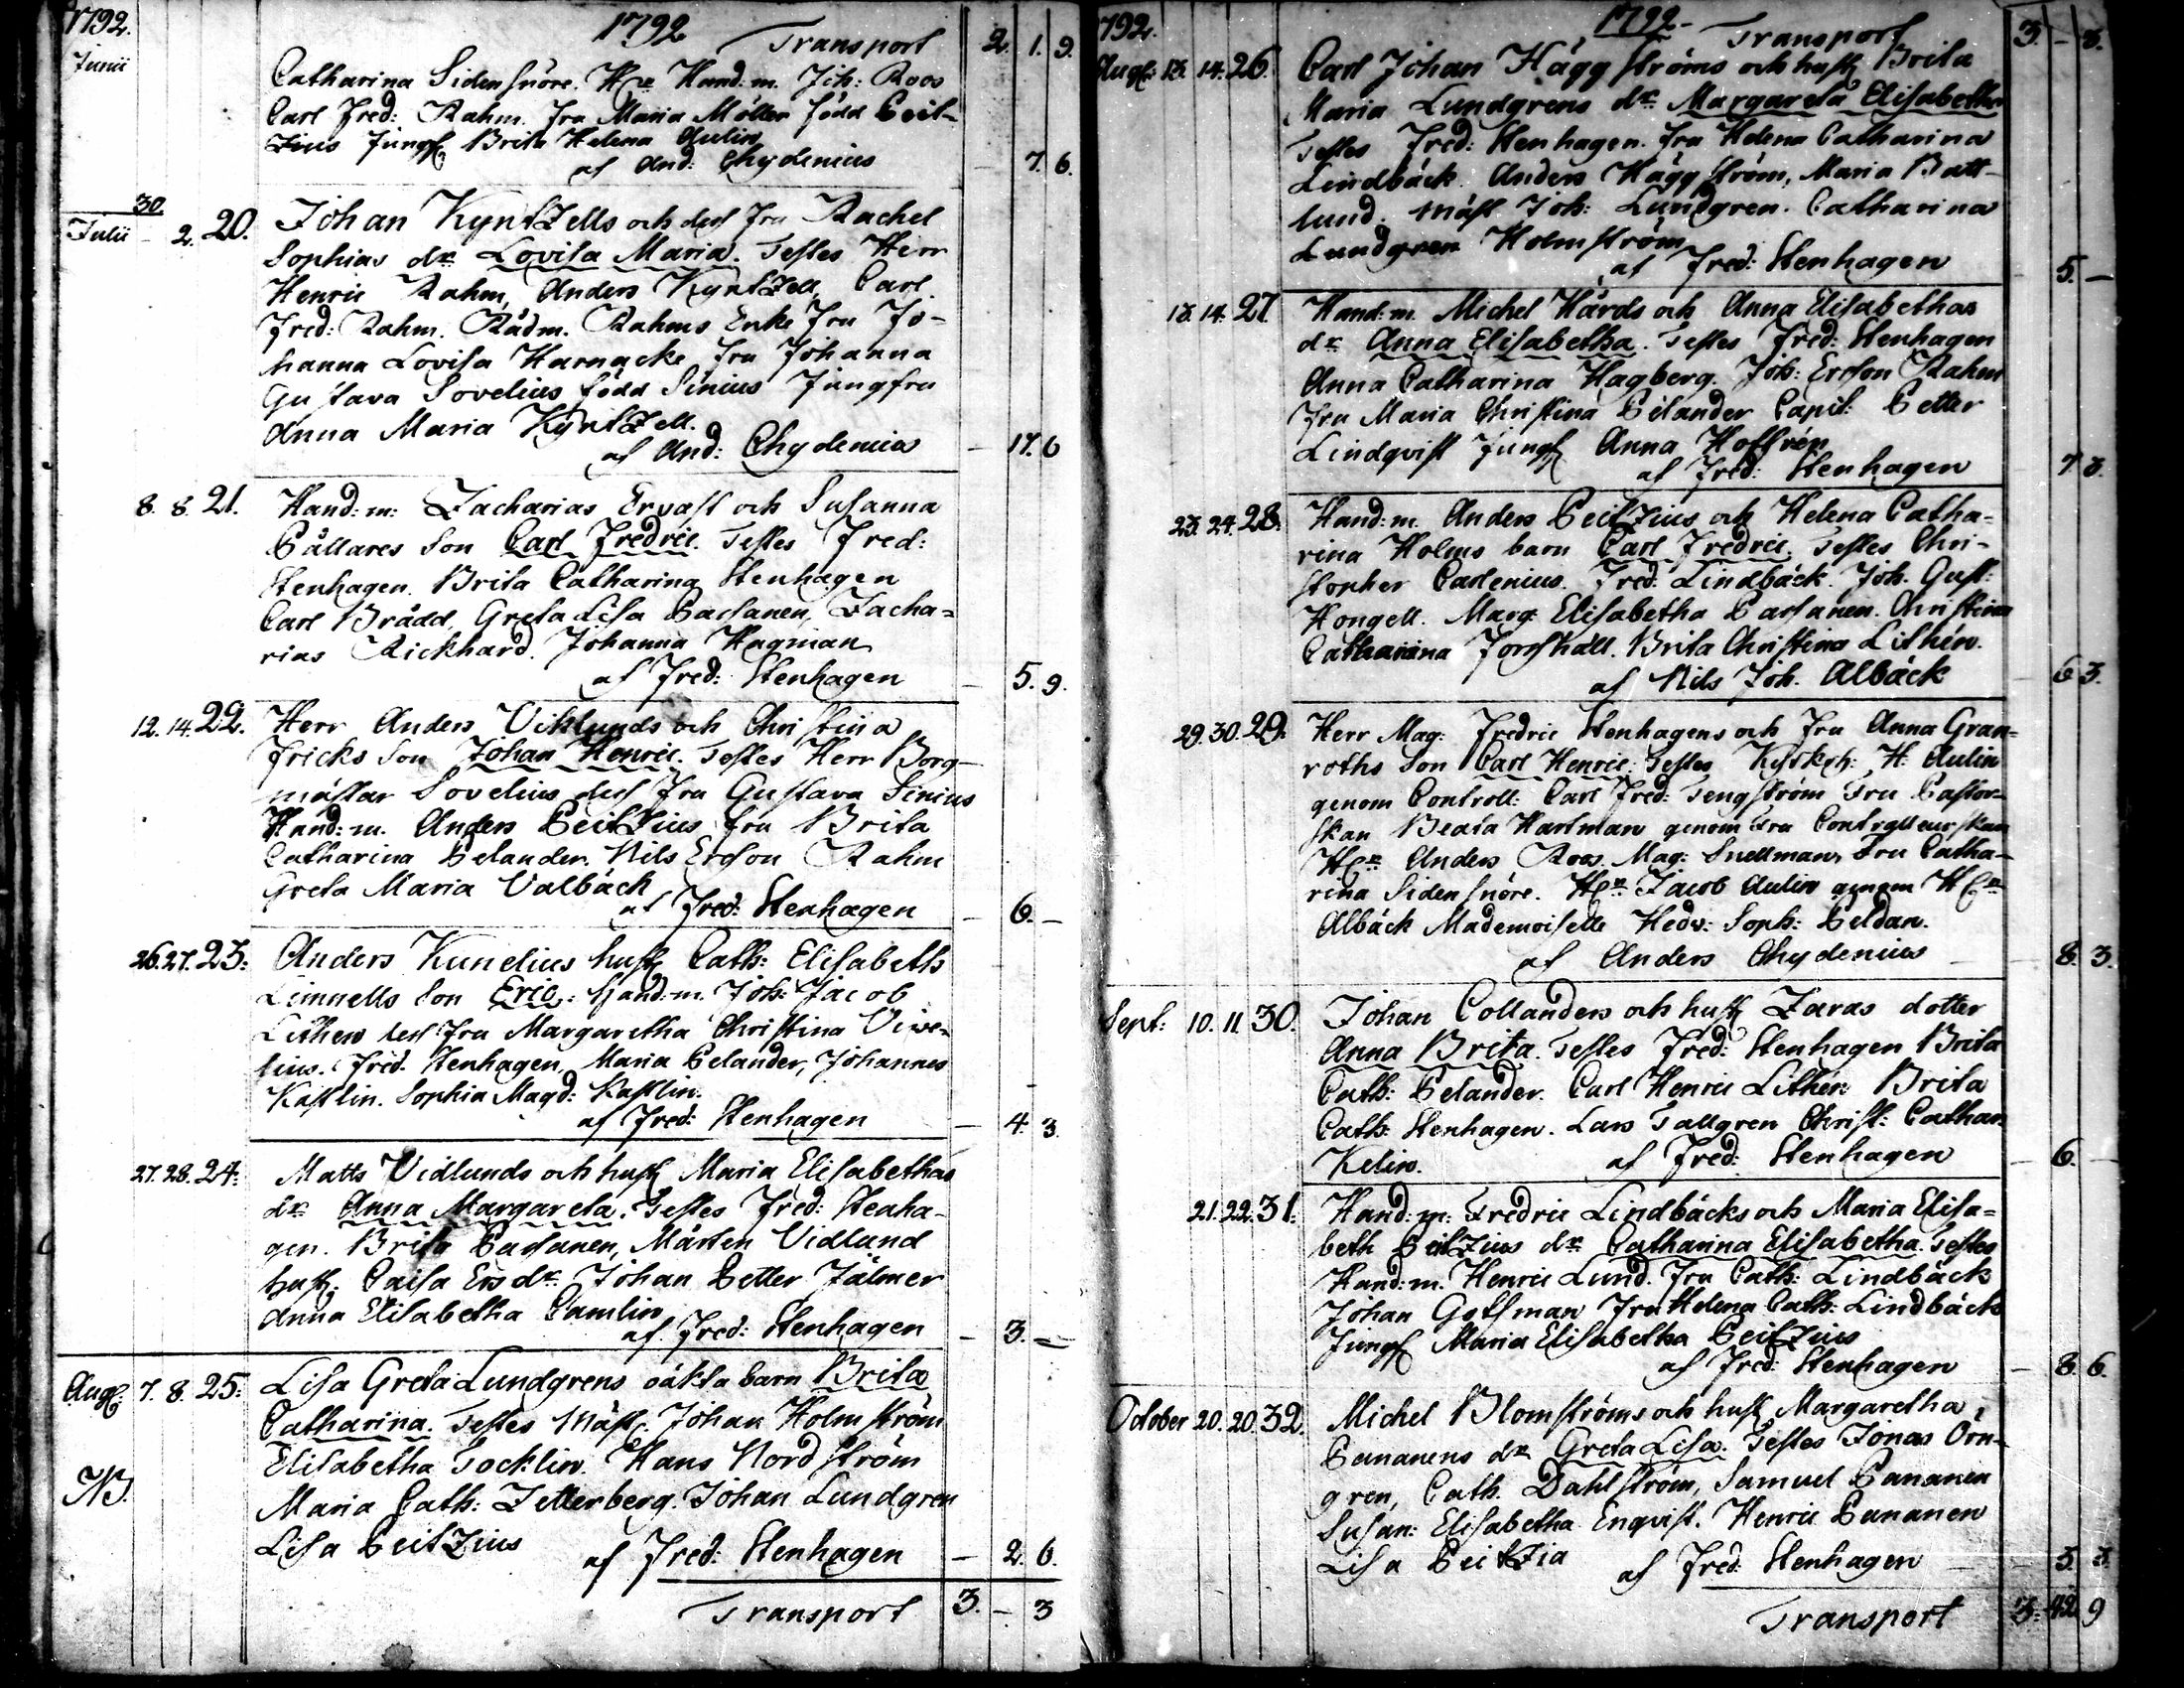 1792.
1792
Transport 2. 1. 9.
Junii
Catharina Sidensnöre. Hand: m. Joh: Roos
Carl Fred: Rahm. fru Maria Möller född Peit-
zius Jungf Brita Helena Aulin
af And: Chydenius - 7. 6.
30.
Julii - 2. 20. Johan Kyntzells och des fru Rachel
Sophias dr Lovisa Maria. Testes Herr
Henric Rahm, Anders Kyntzell, Carl
Fred: Rahm. Rådm. Rahms Enke fru Jo-
hanna Lovisa Harnacke, fru Johanna
Gustava Sovelius född Sinius Jungfru
Anna Maria Kyntzell.
af And: Chydenius - 17. 6
8. 8. 21. Hand: m: Zacharias Ervast och Susanna
Pållares Son Carl Fredric. Testes Fred:
Stenhagen. Brita Catharina Stenhagen
Carl Brådd, Greta Lisa Passanen, Zacha-
rias Rickhard. Johanna Hagman
af Fred: Stenhagen - 5. 9.
12. 14. 22. Herr Anders Viklunds och Christina
Fricks Son Johan Henric. Testes Herr Borg-
mästar Sovelius des fru Gustava Sinius
Hand: m. Anders Peitzius fru Brita
Catharina Pelander. Nils Ersson Rahm
Greta Maria Valbäck
af Fred: Stenhagen - 6. -
26. 27. 23: Anders Kunelius hust Cath: Elisabeth
Limnells Son Eric. Hand: m. Joh: Jacob
Lithen des fru Margaretha Christina Vive-
lius. Fred. Stenhagen, Maria Pelander, Johannes
Kastlin. Sophia Magd: Kastlin.
af Fred: Stenhagen - 4. 3.
27. 28. 24: Matts Vidlunds och hust Maria Elisabethas
dr Anna Margareta. Testes Fred: Stenha-
gen. Brita Passanen, Mårten Vidlund
hust; Caisa Ersdr. Johan Petter Jälmer
Anna Elisabetha Camlin
af Fred: Stenhagen - 3. -
Aug: 7. 8. 25: Lisa Greta Lundgrens oäkta barn Brita
Catharina. Testes Mäst: Johan Holmström
Elisabetha Tocklin. Hans Nordström
NB.
Maria Cath: Zetterberg. Johan Lundgren
Lisa Peitzius
af Fred: Stenhagen - 2. 6.
Transport 3. - 3
792.
1792-
Transport 3. - 3.
Aug: 13. 14. 26. Carl Johan Häggströms och hust Brita
Maria Lundgrens dr Margareta Elisabetha
Testes Fred: Stenhagen. fru Helena Catharina
Lindbäck. Anders Häggström, Maria Batt-
lund. Mäst. Joh: Lundgren. Catharina
Lundgren Holmström
af Fred: Stenhagen - 5. -
13. 14. 27 Hand: m. Michel Hårds och Anna Elisabethas
dr Anna Elisabetha. Testes Fred: Stenhagen
Anna Catharina Hagberg. Joh: Ersson Rahm
fru Maria Christina Pelander Capit: Petter
Lindqvist Jungf Anna Hoffrén
af Fred: Stenhagen 7 3.
23. 24. 28. Hand: m. Anders Peitzius och Helena Catha-
rina Holms barn Carl Fredric. Testes Chri-
stopher Carlenius. Fred. Lindbäck. Joh. Gust:
Hongell. Marg: Elisabetha Passanen. Christina
Catharina Forshäll. Brita Christina Lithén.
af Nils Joh. Albäck - 6 3.
29. 30. 29. Herr Mag: Fredric Stenhagens och fru Anna Gran-
roths Son Carl Henric. Testes Kyrkoh: H: Aulin
genom Controll: Carl Fred: Tengström Fru Pastor-
skan Beata Hartman genom fru Controlleurskan
Anders Roos. Mag: Snellman, Fru Catha-
rina Sidensnöre. Jacob Aulin genom
Albäck Mademoiselle Hedv: Soph: Peldan.
af Anders Chydenius - 8. 3.
Sept: 10. 11. 30. Johan Collanders och hust Zaras dotter
Anna Brita. Testes Fred: Stenhagen Brita
Cath: Pelander. Carl Henric Lithén Brita
Cath: Stenhagen. Lars Tallgren Christ: Cathar:
Kelin. af Fred: Stenhagen - 6. -
21. 22. 31: Hand: m: Fredric Lindbäcks och Maria Elisa-
beth Peitzius dr Catharina Elisabetha. Testes
Hand: m. Henric Lund. fru Cath: Lindbäck
Johan Gottman fru Helena Cath: Lindbäck
Jungf Maria Elisabetha Peitzius
af Fred: Stenhagen - 8. 6.
October 20. 20. 32. Michel Blomströms och hust Margaretha
Pananens dr Greta Lisa. Testes Jonas Örn-
gren, Cath. Dahlström, Samuel Pananen
Susan: Elisabetha Enqvist. Henric Pananen
Lisa Peitzia af Fred: Stenhagen - 3. 3.
Transport 3: 42 9